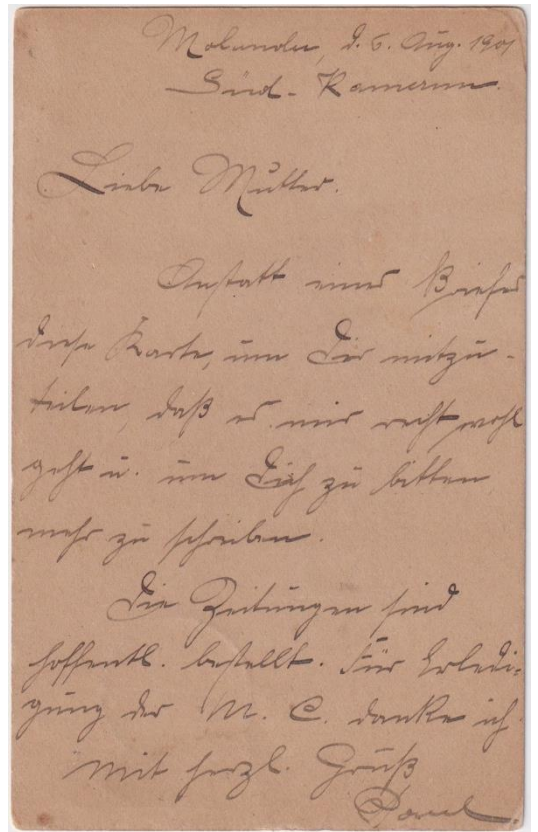 Molundu, d. 6. Aug. 1901
Süd-Kamerun.
Liebe Mutter.
Anstatt eines Briefes
diese Karte, um Dir mitzu-
teilen, daß es mir recht wohl
geht u. um Dich zu bitten
mehr zu schreiben.
Die Zeitungen sind
hoffentl. bestellt. Für Erledi-
gung der M. C. danke ich.
Mit herzl. Gruß